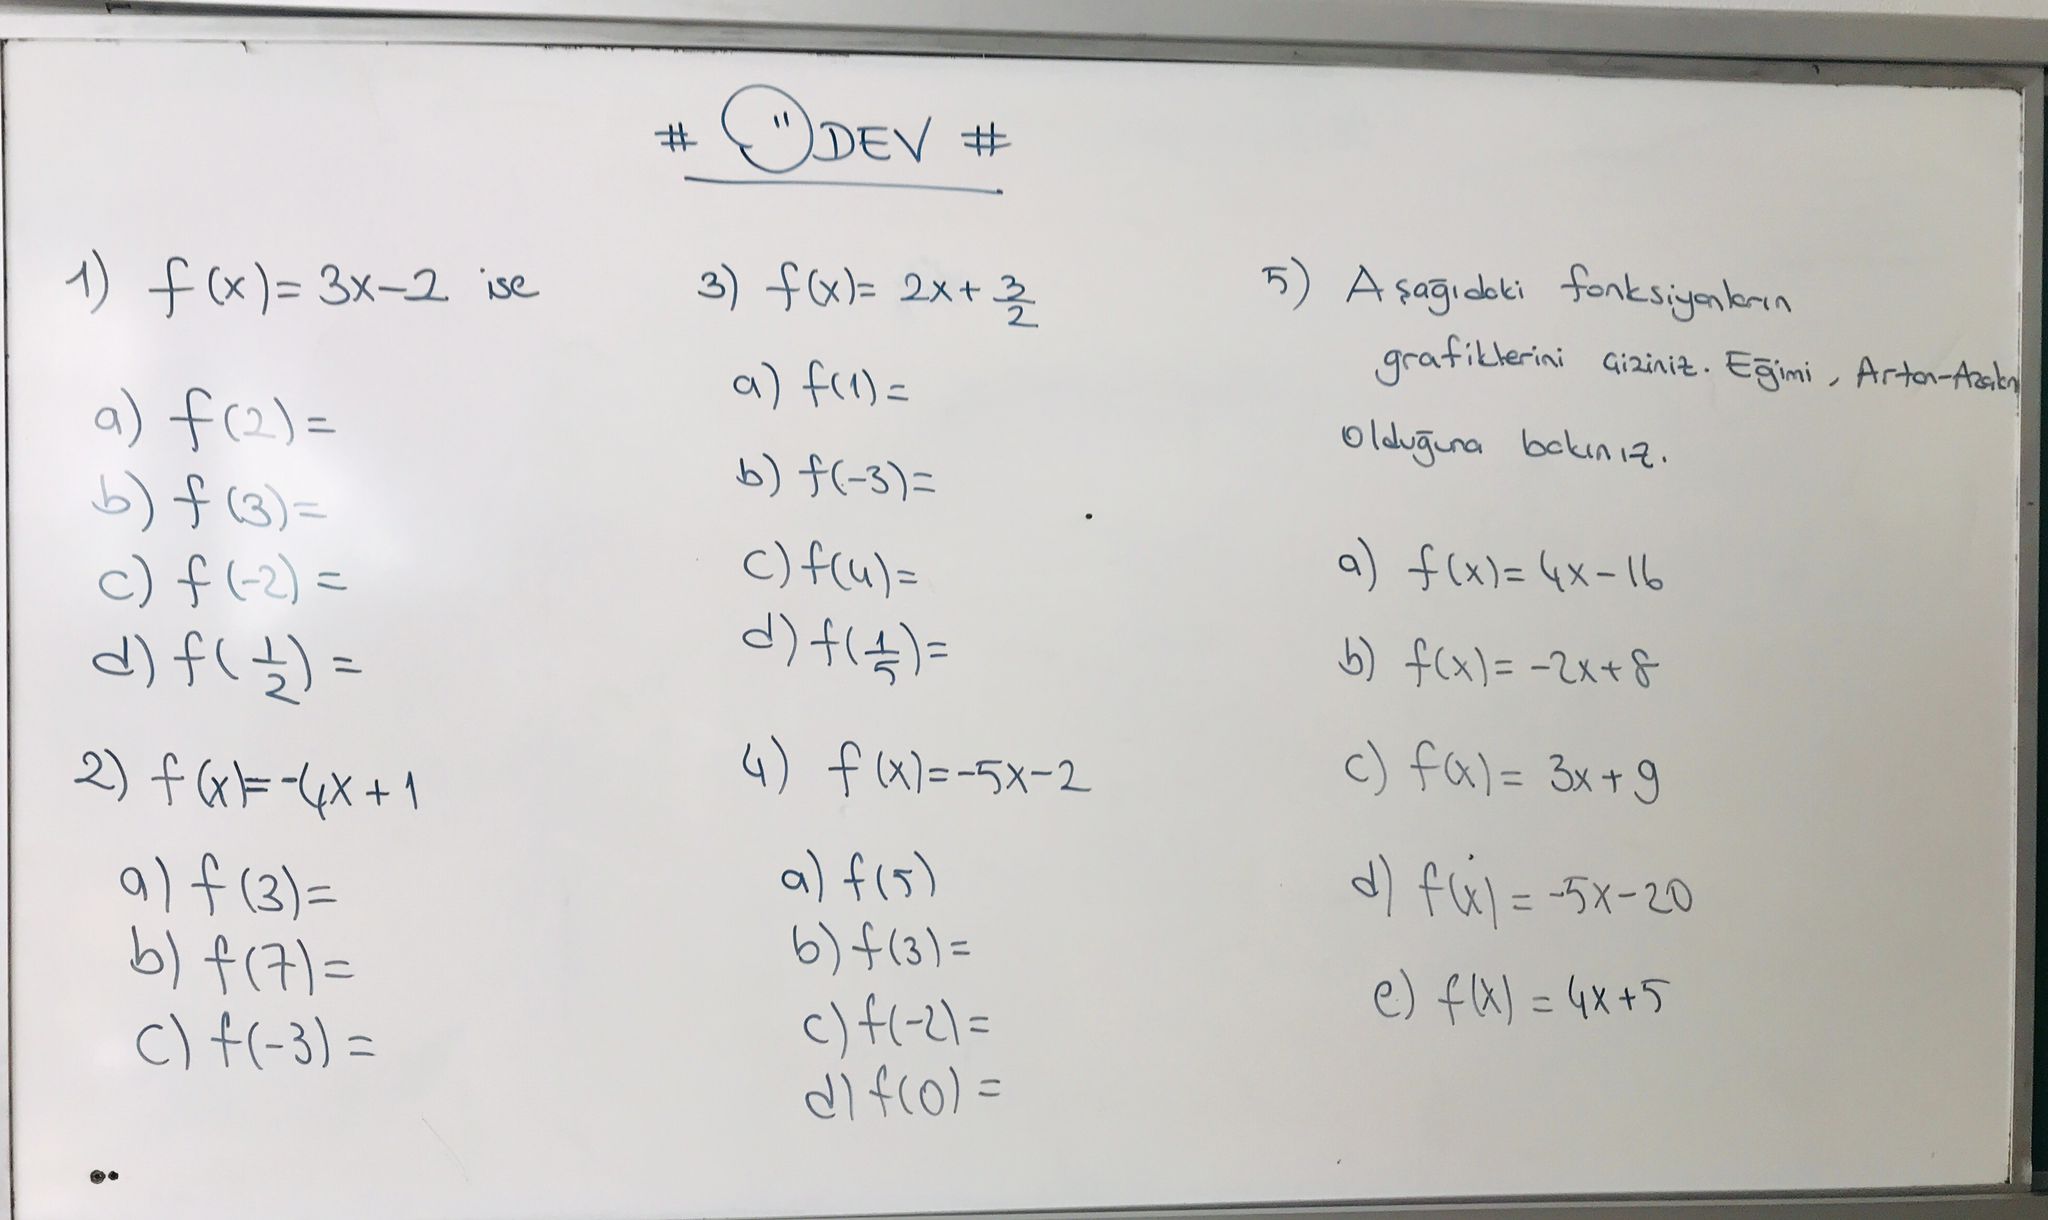 # ÖDEV #
1) f(x)= 3x-2 ise
a) f(2)=
b) f(3)=
c) f(-2)=
d) f(1/2)=
2) f(x)=-4x+1
a) f(3)=
b) f(7)=
c) f(-3)=
3) f(x)= 2x+3/2
a) f(1)=
b) f(-3)=
c) f(4)=
d) f(1/5)=
4) f(x)=-5x-2
a) f(5)
b) f(3)=
c) f(-2)=
d) f(0)=
5) Aşağıdaki fonksiyonların
grafiklerini çiziniz. Eğimi, Artan-Azalan
olduğuna bakınız.
a) f(x)= 4x-16
b) f(x)= -2x+8
c) f(x)= 3x+9
d) f(x)= -5x-20
e) f(x) = 4x+5